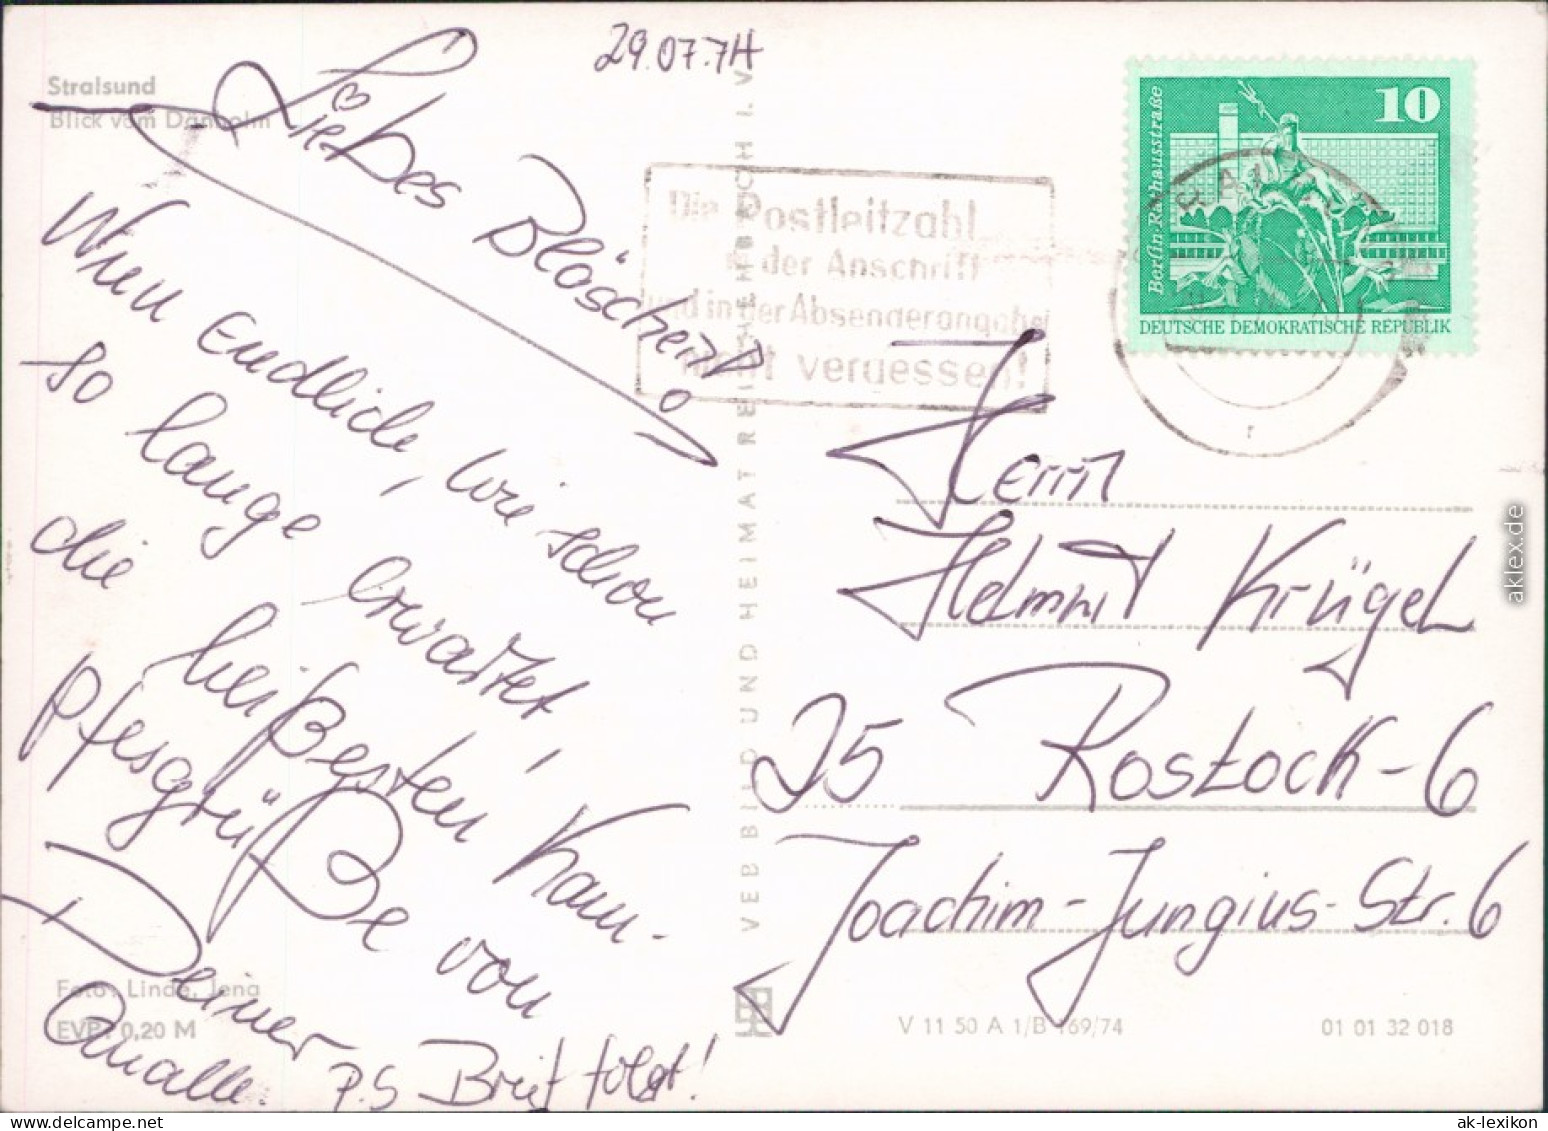 29.07.74
Stralsund
Blick vom Dänholm
Liebes Bläschen!
Nun endlich, wie schon
so lange erwartet,
die heißesten Kam-
pfesgrüße von
Deiner
P.S Brief folgt!
Foto: Linde, Jena
EVP: 0,20 M
VEB BILD UND HEIMAT REICHENBACH I. V.
Die Postleitzahl
in der Anschrift
und in der Absenderangabe
nicht vergessen!
10
Berlin-Rathausstraße
DEUTSCHE DEMOKRATISCHE REPUBLIK
Herrn
Helmut Krügel
25 Rostock-6
Joachim-Jungius-Str. 6
V 11 50 A 1/B 169/74
01 01 32 018
aklex.de
ak-lexikon